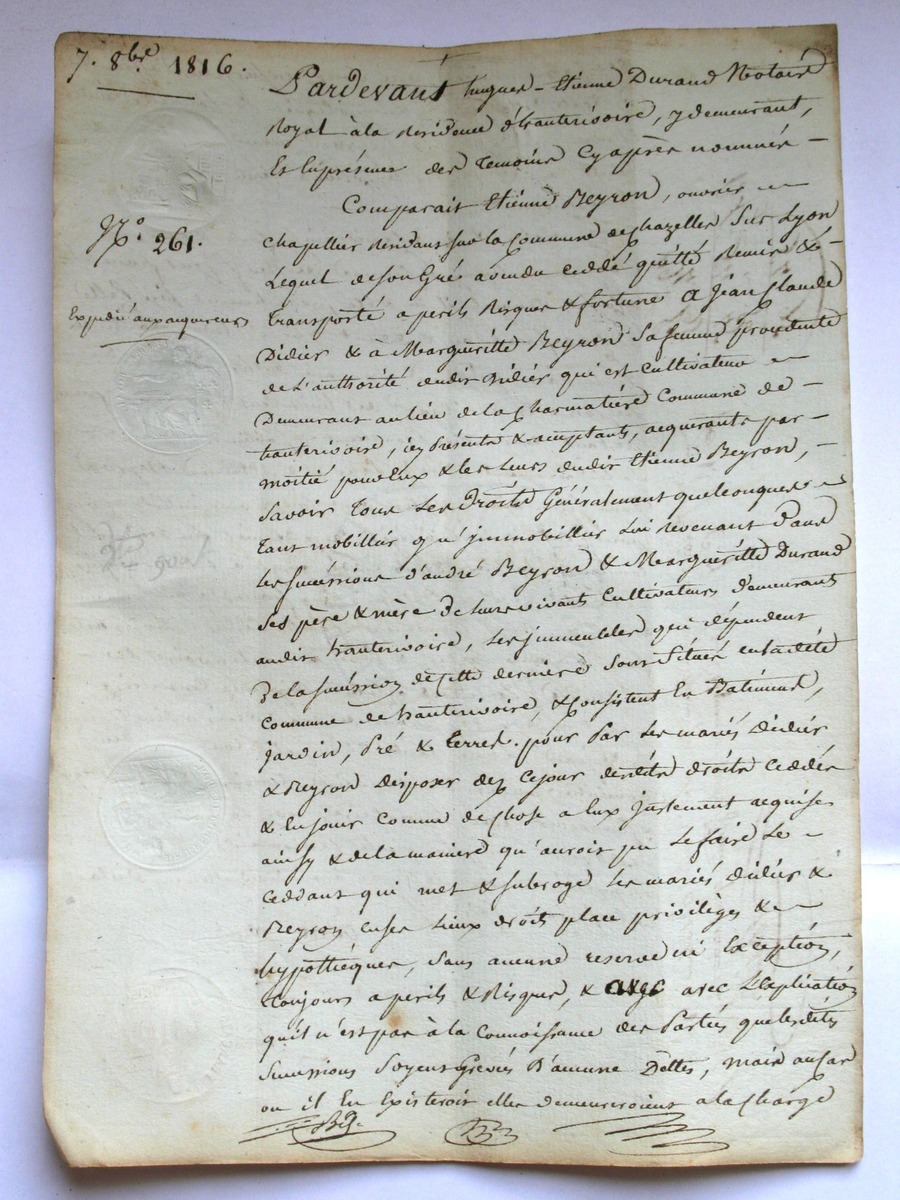 7. 8bre 1816.
Pardevant hugues-Etienne Durand Notaire
Royal à la Residence d'hauterivoire, y demeurant,
Et En présence des Temoins Cy après nommés -
N.o 261.
Comparait Etienne Beyron, ouvrier
chapellier Residant sur la Commune de Chazelles Sur Lyon
Lequel de son Gré a vendu ceddé quitté Remis & -
Expedié aux acquereurs
Transporté a perils Risques & fortune A Jean Claude
Didier & à Margueritte Beyron Sa femme procedente
de L'authorité dudit Didier qui est Cultivateur
Demeurant au lieu de la Charmatière Commune de -
hauterivoire, icy Présents & acceptants, acquerants par -
moitié pour Eux & les leurs dudit Etienne Beyron, -
Savoir Tous Les Droits Généralement quelconques
Tant mobilliers qu'immobilliers Lui revenant Dans
les successions d'andré Beyron & Margueritte Durand
Ses père & mère De leurs vivants Cultivateurs Demeurants
audit hauterivoire, Les immeubles qui dépendent
De la succession de Cette derniere Sont Situés en la dite
Commune de hauterivoire, & Consistent En Batiment,
Jardin, Pré & terres. pour Par Les mariés Didier
& Beyron Disposer dez Cejour desdits droits Ceddés
& En jouir Comme de Chose a Eux justement acquises
ainsy & de la maniere qu'auroit pu Le faire Le -
Ceddant qui met & subroge Les mariés Didier &
Beyron en ses Lieux droits place privilèges &
hypothèques, Sans aucune reserve ni Exception,
Toujours a perils & Risques, & avec L'Explication
qu'il n'est pas à la Connoissance des Parties que lesdites
Successions Soyent Grévées D'aucune Dettes, mais au Cas
ou il En Existeroit elles demeureroient a la Charge